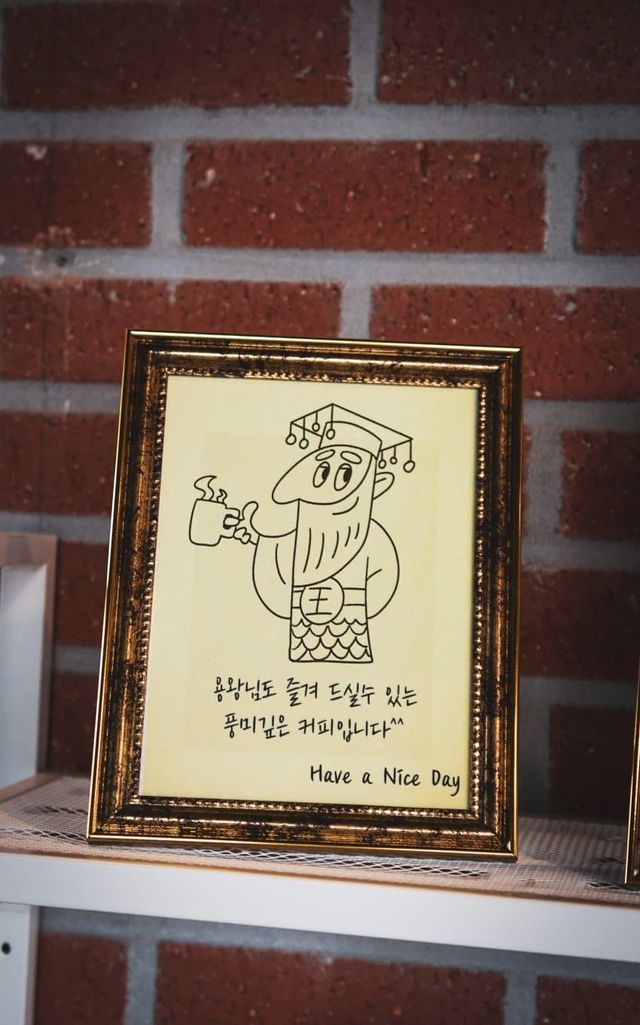 王
용왕님도 즐겨 드실수 있는
풍미깊은 커피입니다^^
Have a Nice Day